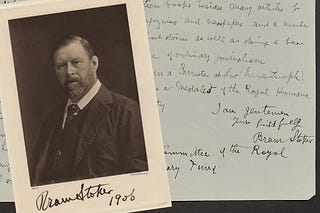 other books besides many articles to
magazines and newspapers and a number
short stories as well as doing a
of ordinary journalism
a Barrister at Law (Inner Temple)
a Medalist of the Royal Humane
I am gentlemen
Yours faithfully
Bram Stoker
Committee of the Royal
Literary Fund
Bram Stoker
1906